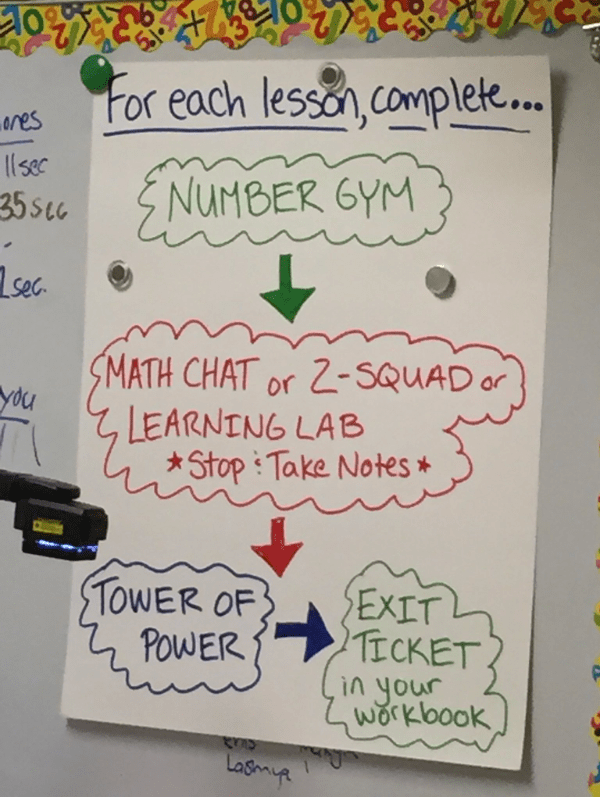 For each lesson, complete...
NUMBER GYM
MATH CHAT or Z-SQUAD or
LEARNING LAB
*Stop & Take Notes*
TOWER OF
POWER
EXIT
TICKET
in your
workbook
ones
11sec
35 sec
sec.
you